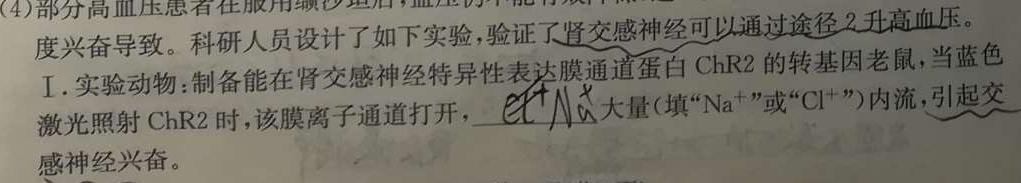 (4)部分高血压患者在服用缬沙坦后,血压仍不能有效
度兴奋导致。科研人员设计了如下实验,验证了肾交感神经可以通过途径2升高血压。
Ⅰ.实验动物:制备能在肾交感神经特异性表达膜通道蛋白 ChR2 的转基因老鼠,当蓝色
激光照射 ChR2 时,该膜离子通道打开, Na⁺ 大量(填“Na⁺”或“Cl⁺”)内流,引起交
感神经兴奋。